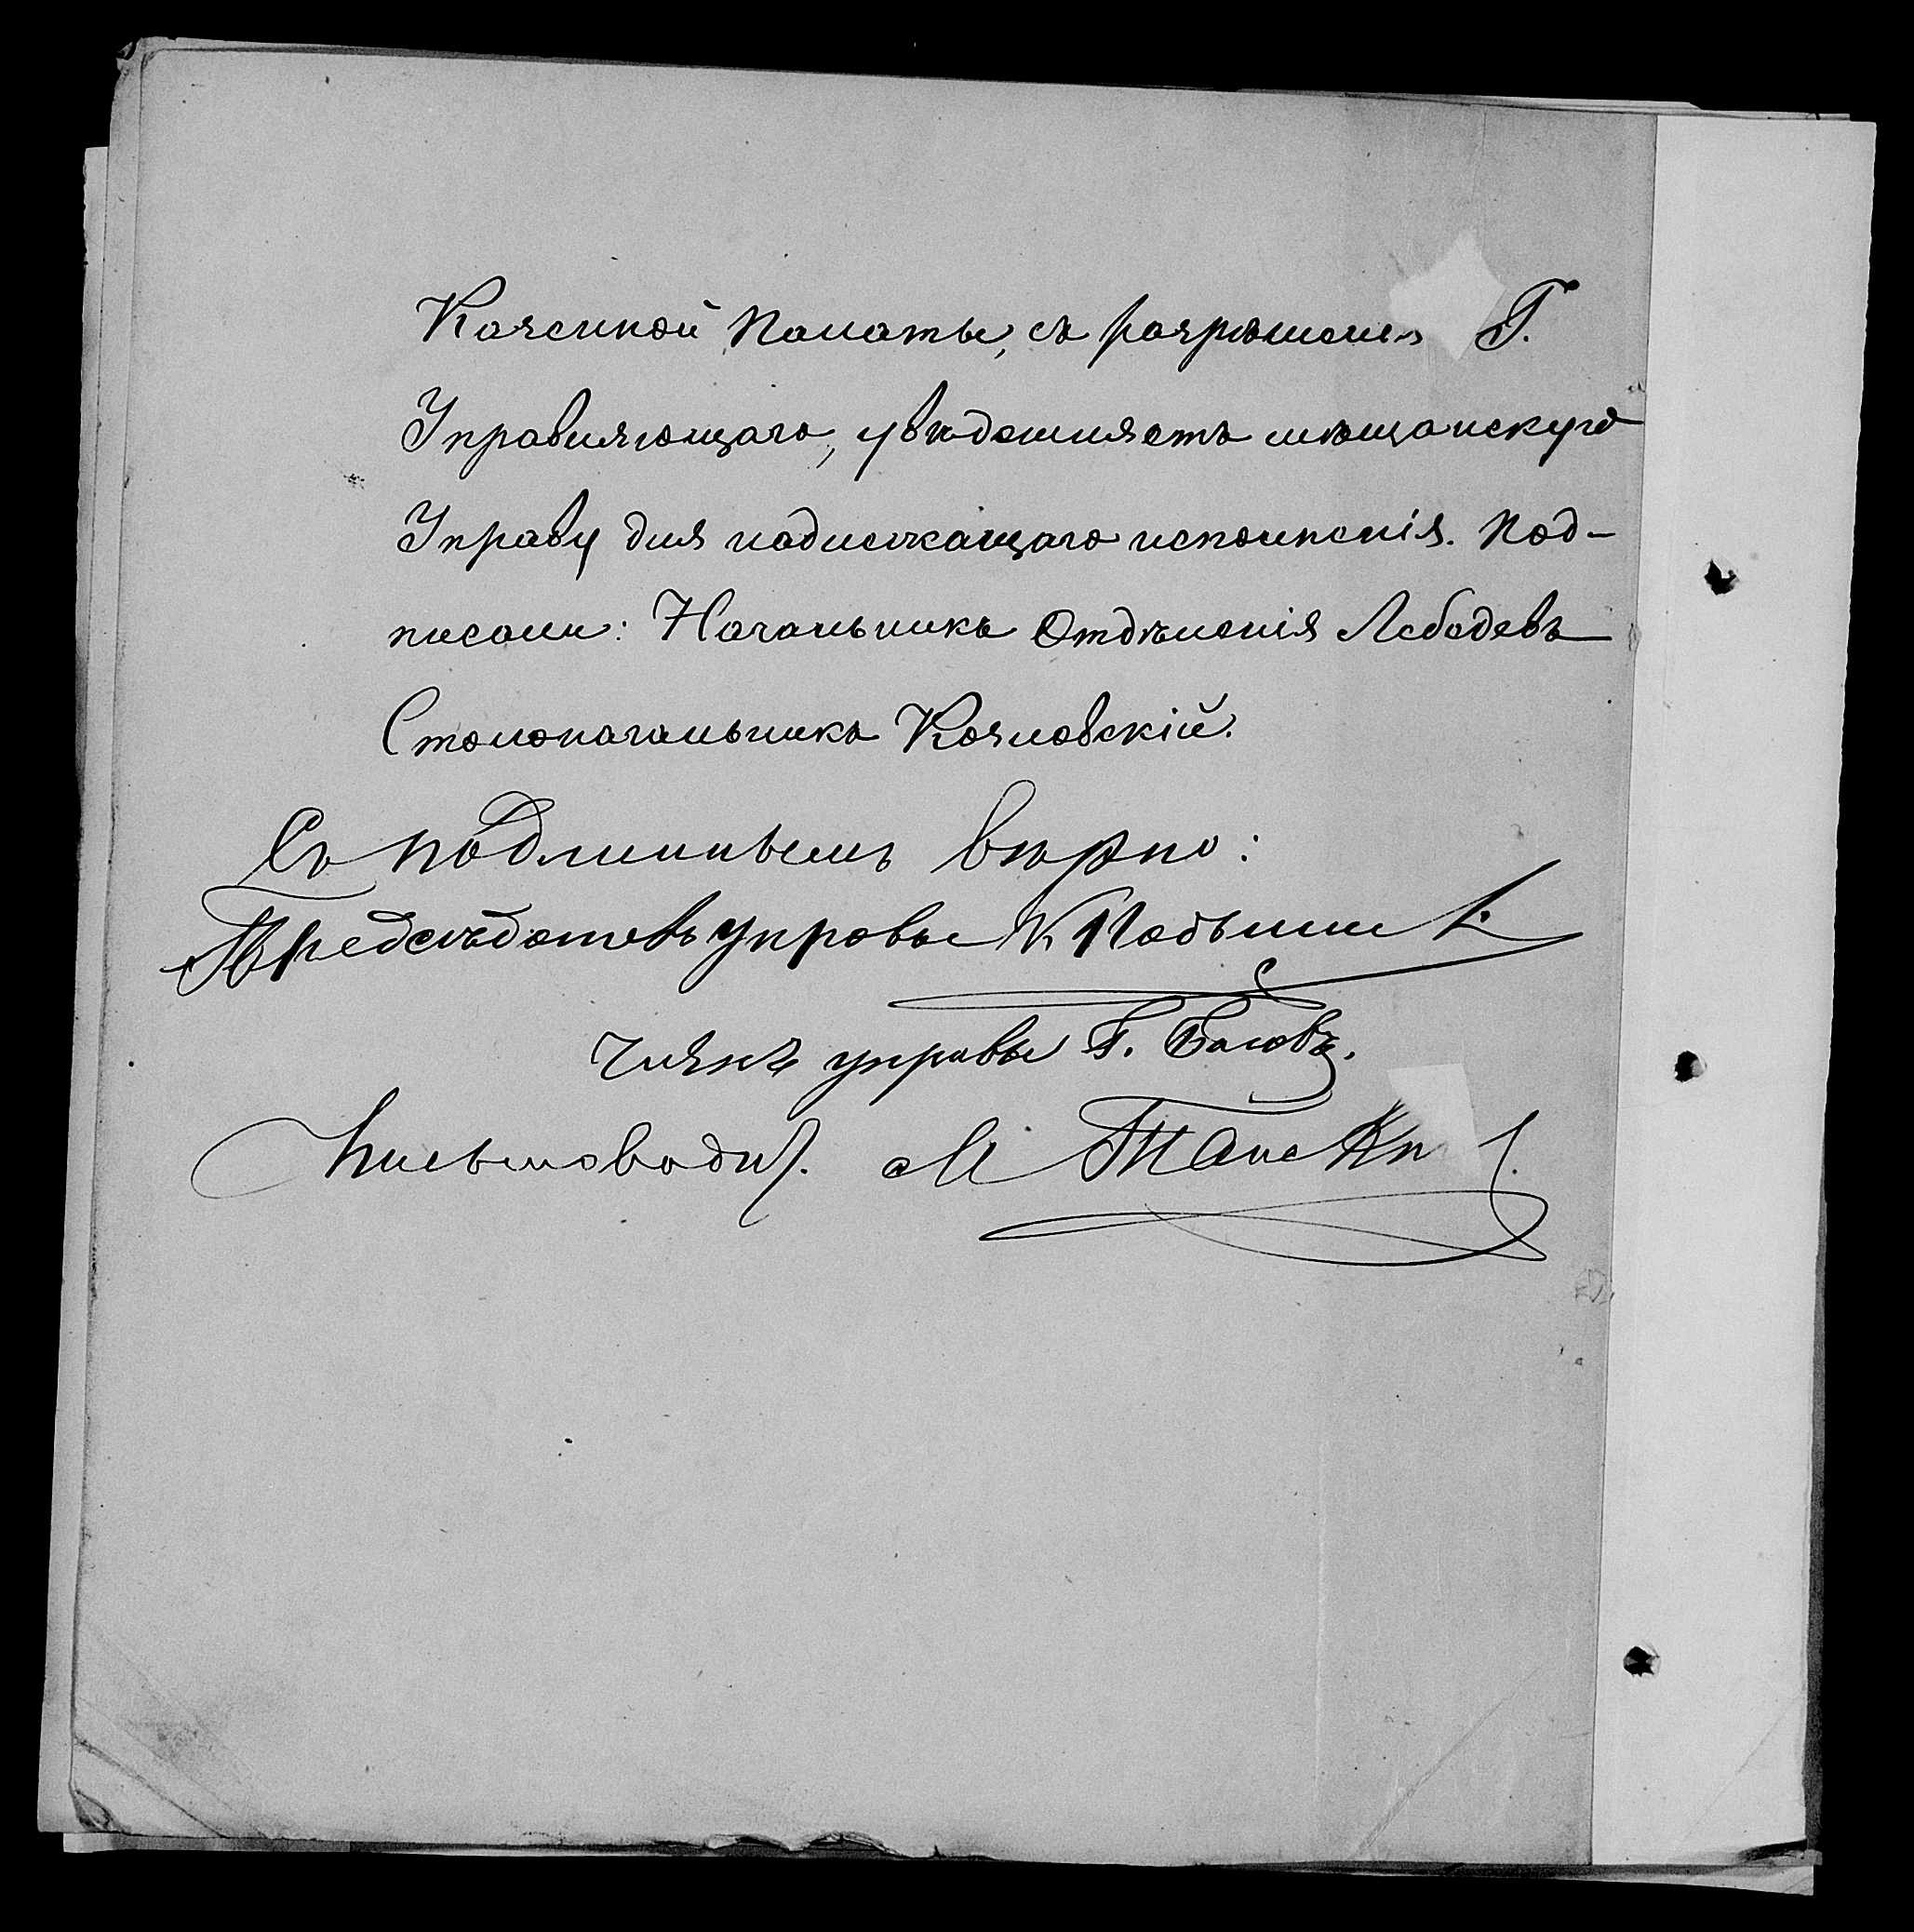 Казенной Палаты, съ разрѣшенія Г.
Управляющаго, увѣдомляетъ мѣщанскую
Управу для надлежащаго исполненія. Под-
писали: Начальникъ Отдѣленія Лебедевъ
Столоначальникъ Козловскій.
Съ подлиннымъ вѣрно:
Предсѣдатель управы К
Членъ управы Г. Басовъ.
Письмовод. М